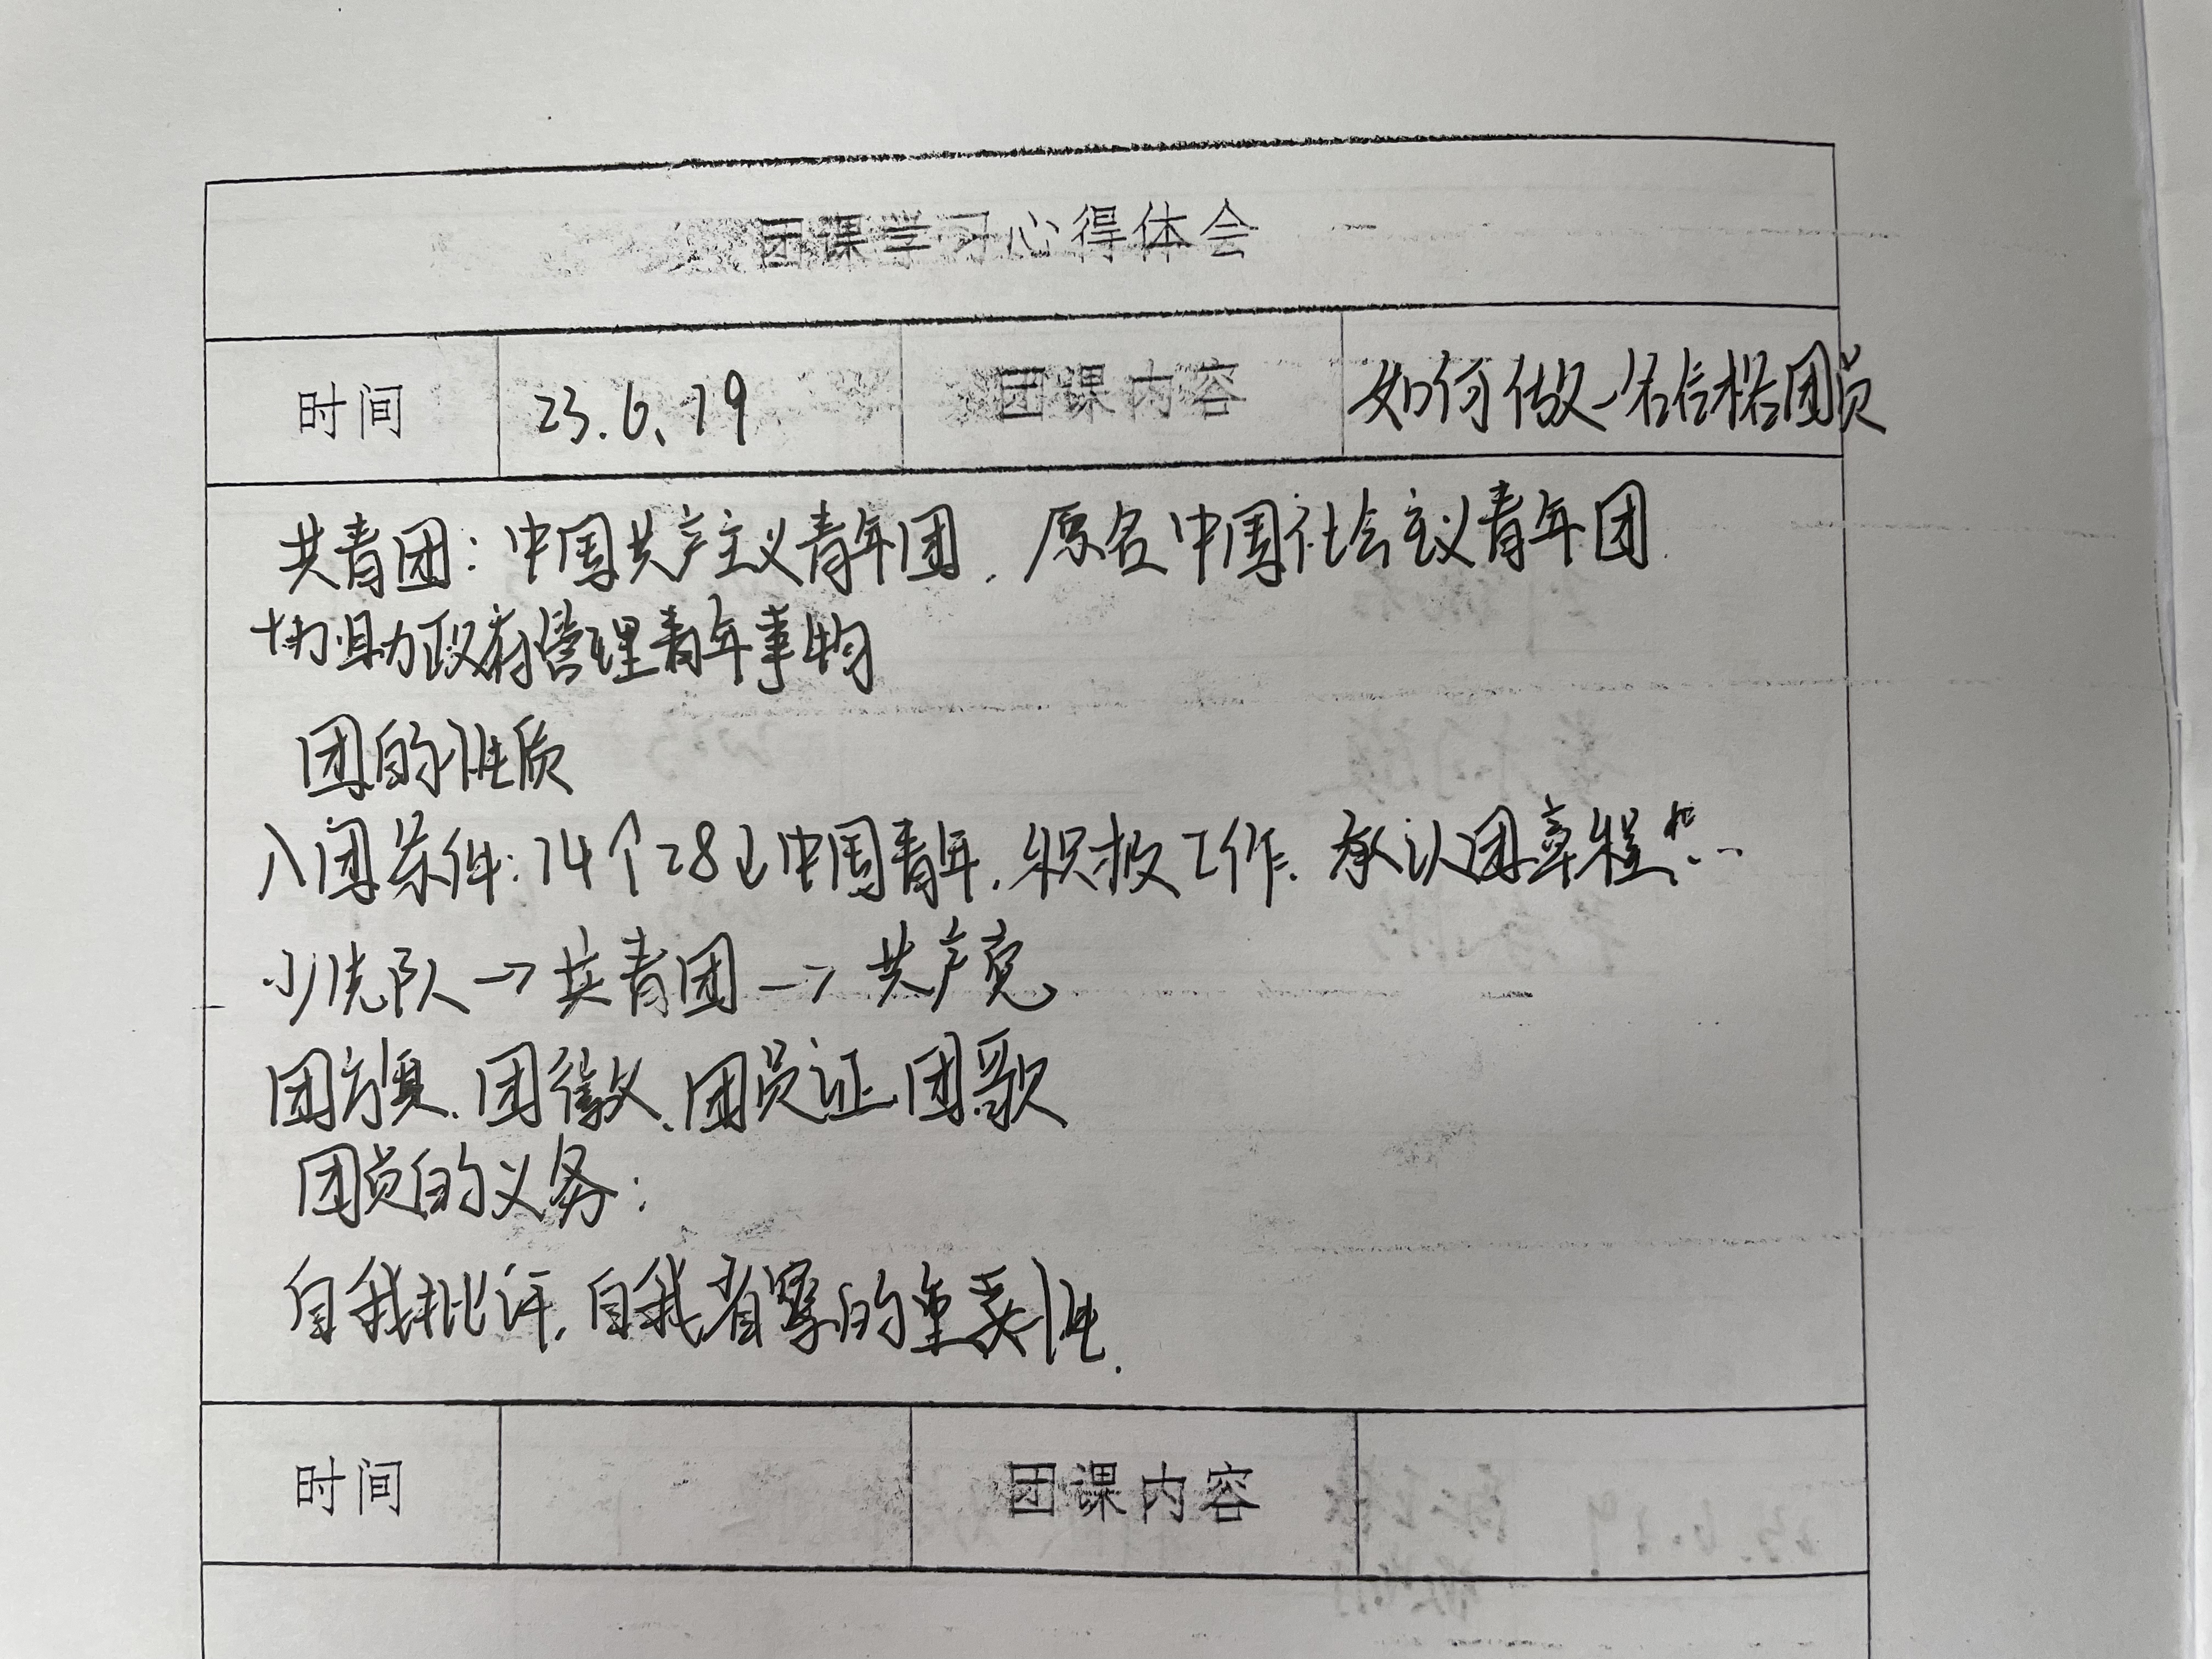 团课学习心得体会
时间 23.6.19 团课内容 如何做一名合格团员
共青团：中国共产主义青年团，原名中国社会主义青年团.
协助政府管理青年事物
团的性质
入团条件：14个28↓中国青年，积极工作、承认团章程
少先队→共青团→共产党
团旗、团徽、团员证、团歌
团员的义务：
自我批评，自我省察的重要性.
时间 团课内容